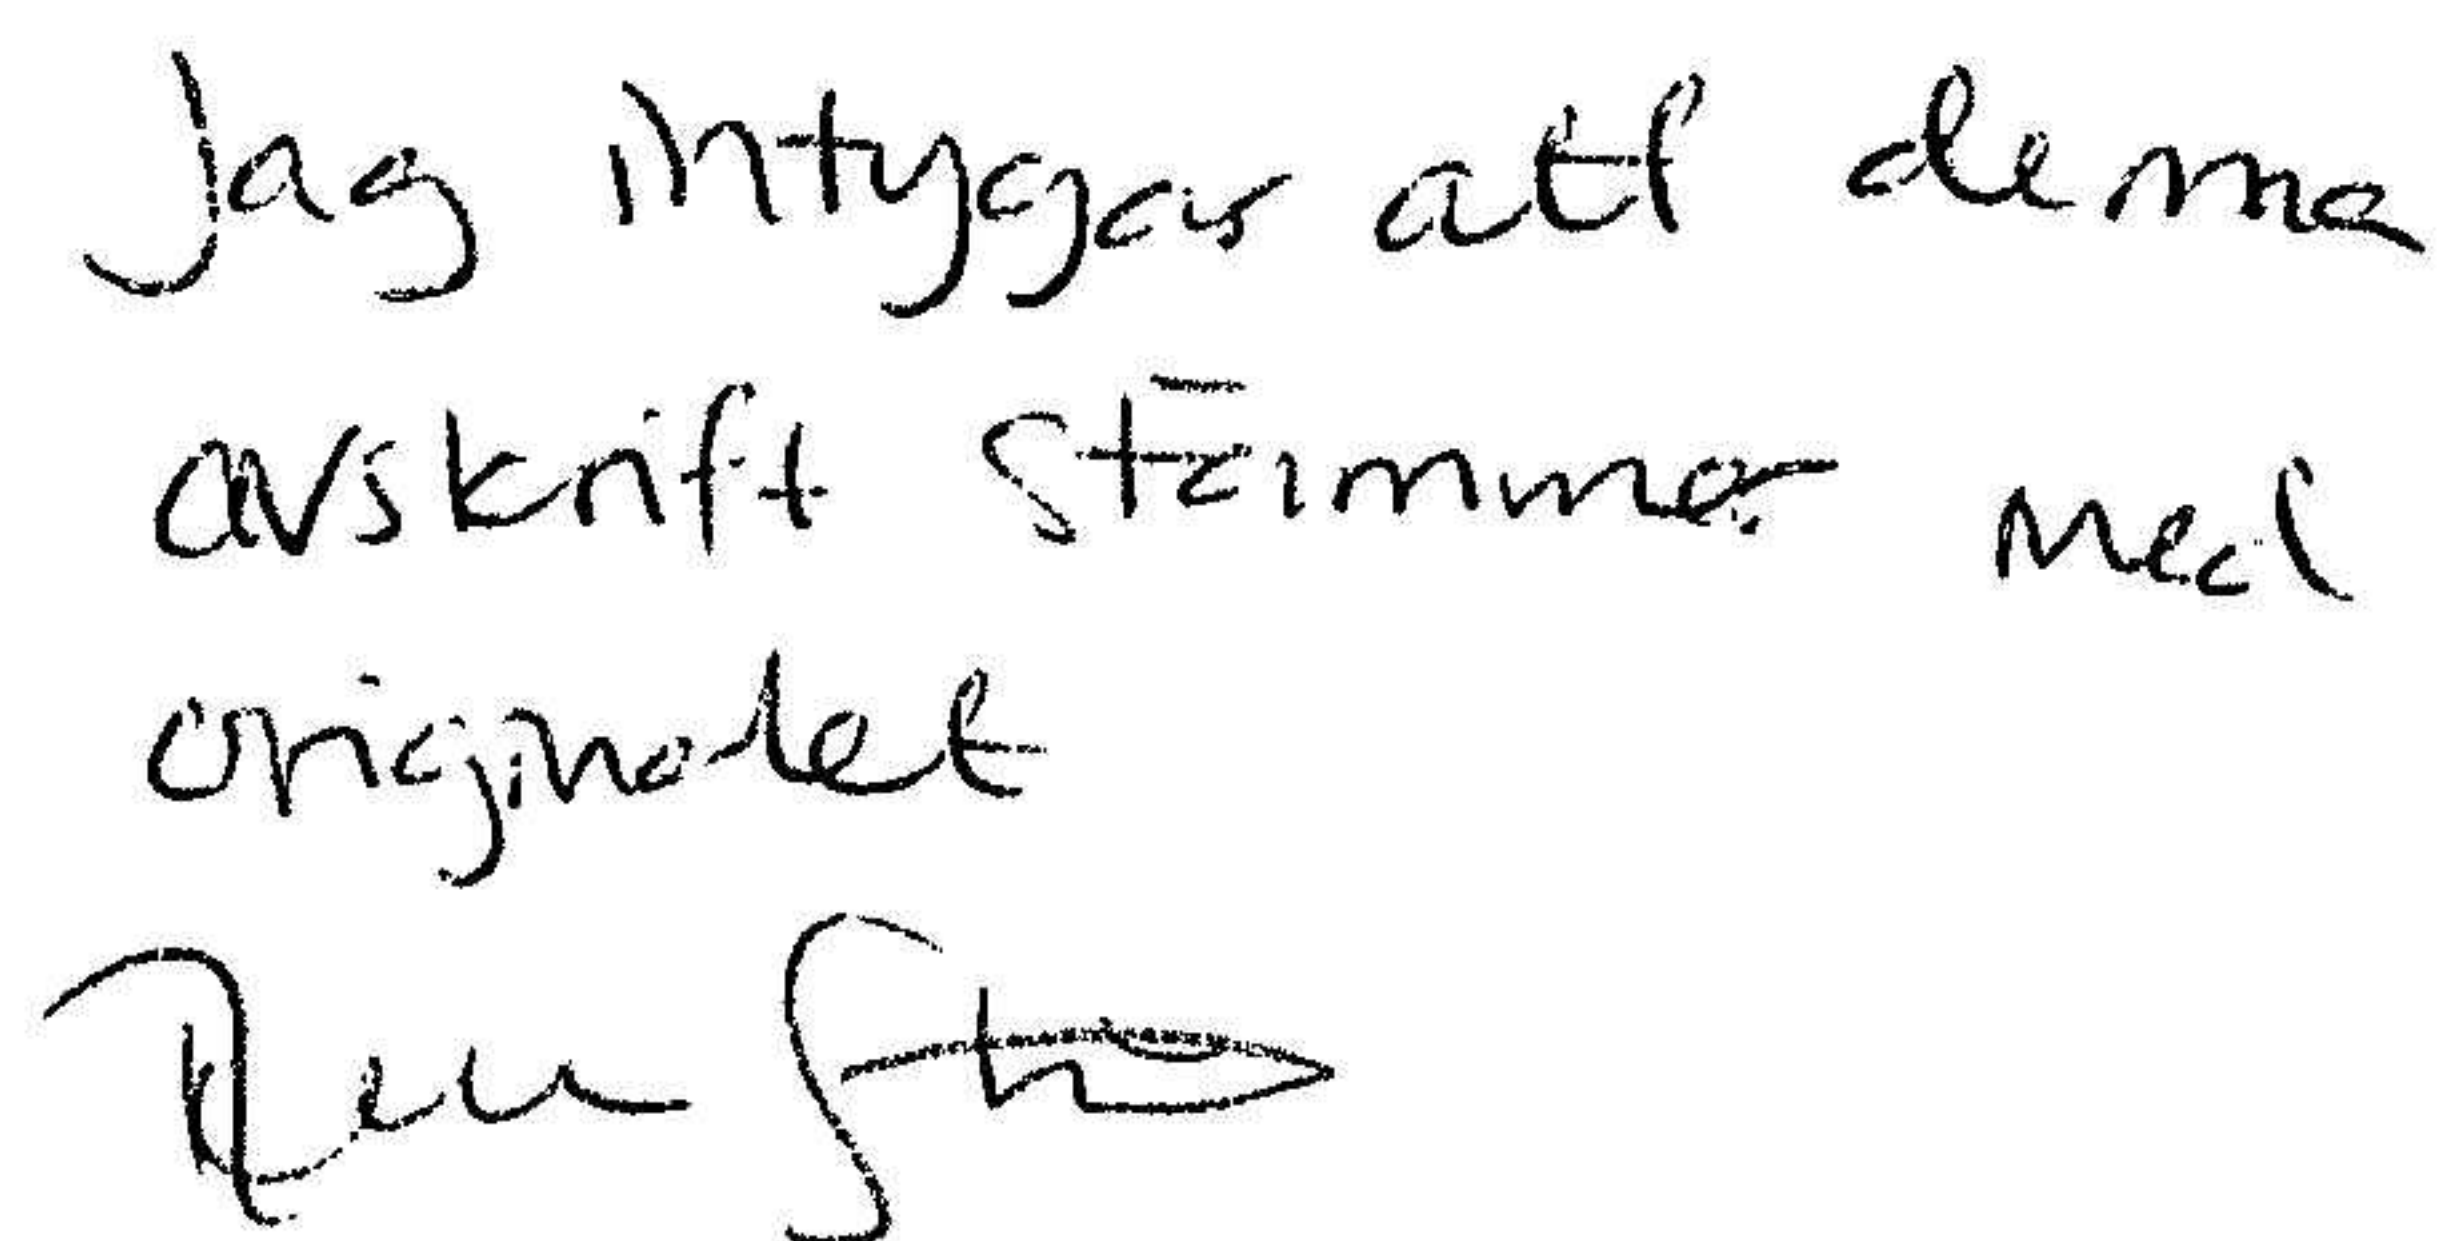 Jag intygar att denna
avskrift stämmer med
originalet